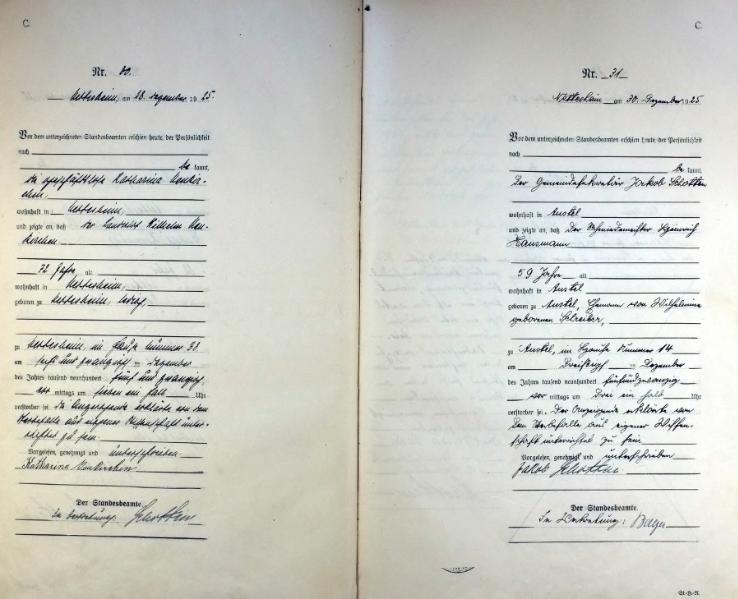 C.
Nr. 30.
Nettersheim, am 28. Dezember 1925.
Vor dem unterzeichneten Standesbeamten erschien heute, der Persönlichkeit
nach
be kannt,
die geschäftslose Katharina Neukir-
chen,
wohnhaft in Nettersheim,
und zeigte an, daß der Landwirt Wilhelm Neu-
kirchen,
72 Jahre, alt
wohnhaft in Nettersheim,
geboren zu Nettersheim,
zu Nettersheim, im Hause Nummer
am sechs und zwanzigsten Dezember
des Jahres tausend neunhundert fünf und zwanzig,
mittags um sieben ein halb Uhr
verstorben sei. Die Anzeigende erklärte von dem
Sterbefalle aus eigener Wissenschaft unter-
richtet zu sein.
Vorgelesen, genehmigt und unterschrieben
Katharina Neukirchen
Der Standesbeamte.
In Vertretung: Schotten
C.
Nr. 31
Nettersheim am 30. Dezember 1925
Vor dem unterzeichneten Standesbeamten erschien heute, der Persönlichkeit
nach
be kannt,
Der Gemeindesekretär Jakob Schotten
wohnhaft in
und zeigte an, daß Der Schmiedemeister Heinrich
Hansmann
59 Jahre alt
wohnhaft in
geboren zu Ehemann von Wilhelmine
geborenen
zu im Hause Nummer 14
am Dezember
des Jahres tausend neunhundert fünfundzwanzig
vor mittags um Drei ein halb Uhr
verstorben sei. Der Anzeigende erklärte von
dem Sterbefalle aus eigener Wissen-
schaft unterrichtet zu sein
Vorgelesen, genehmigt und unterschrieben
Jakob Schotten
Der Standesbeamte.
In Vertretung: